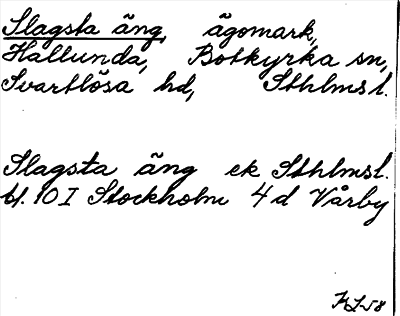 Slagsta äng, ägomark,
Hallunda, Botkyrka sn,
Svartlösa hd, Sthlmsl.
Slagsta äng ek Sthlmsl.
bl. 10 I Stockholm 4 d Vårby